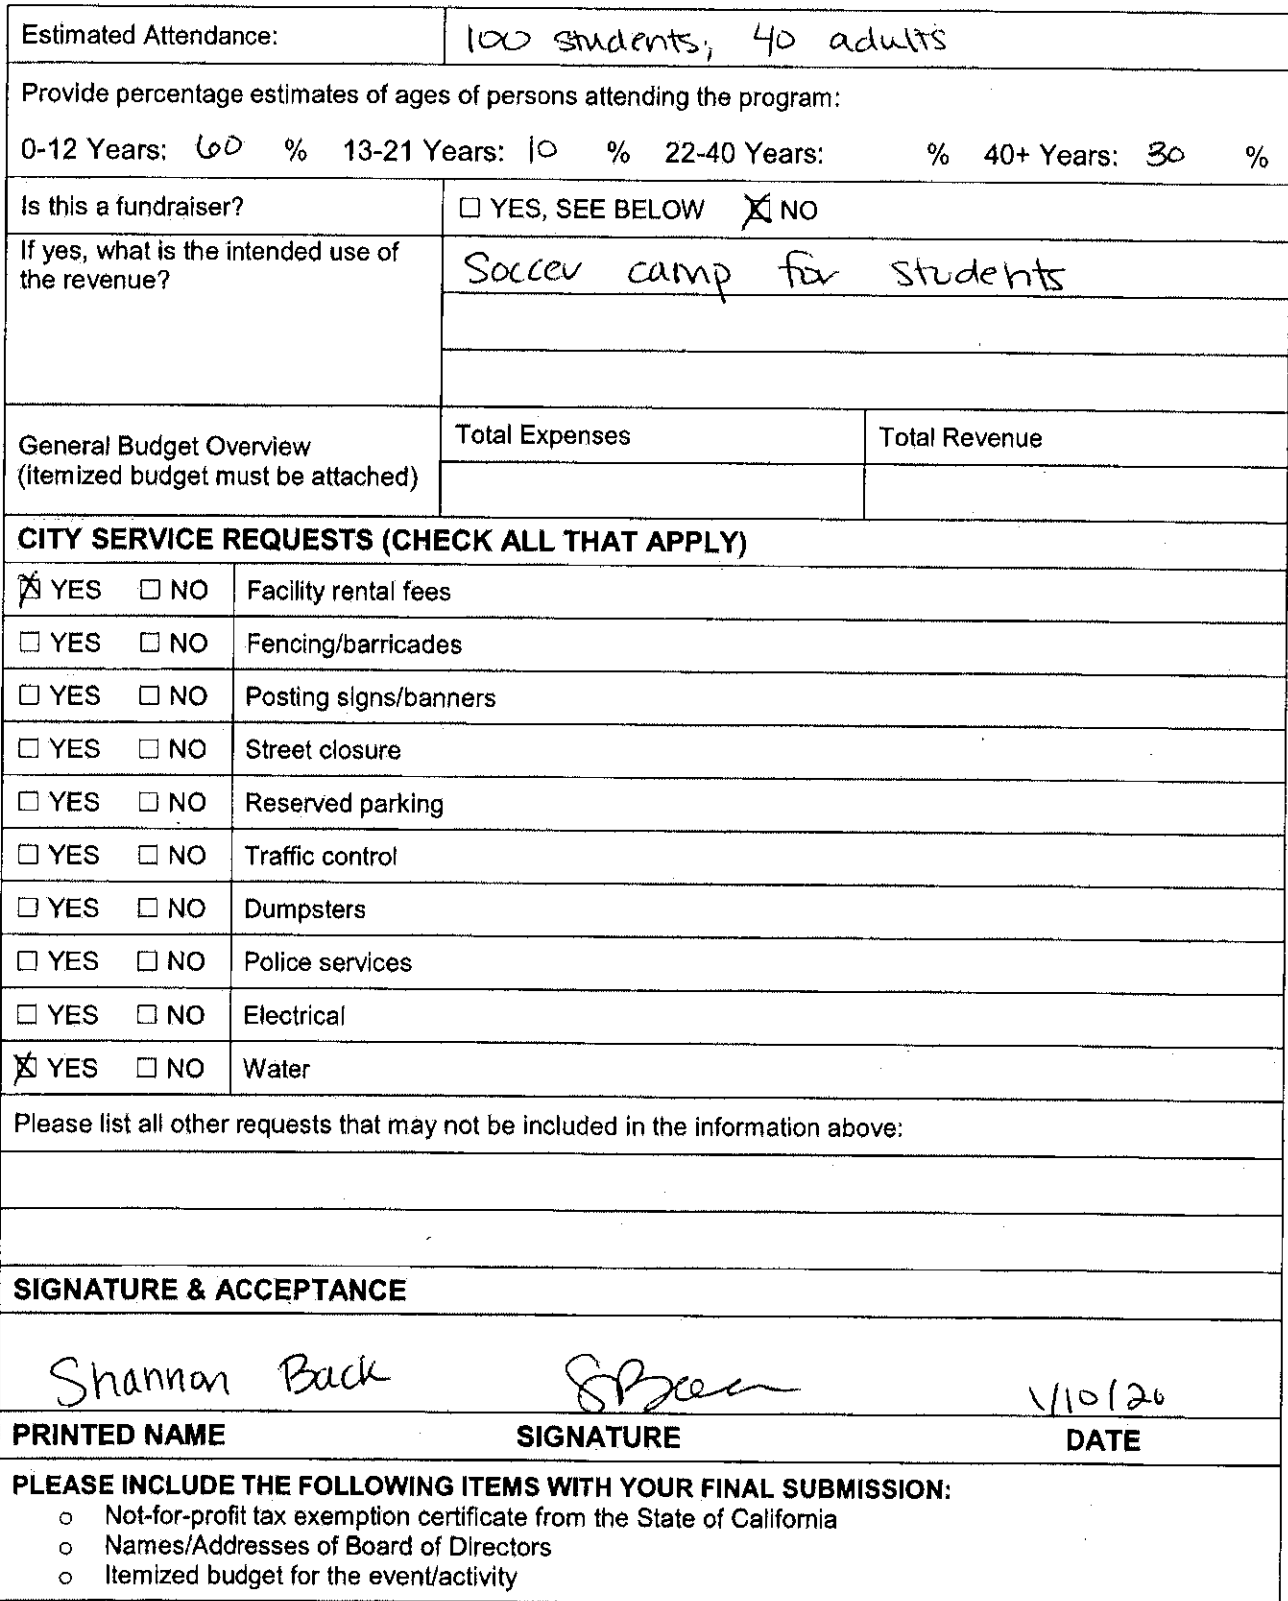 Estimated Attendance: 100 students, 40 adults
Provide percentage estimates of ages of persons attending the program:
0-12 Years: 60 % 13-21 Years: 10 % 22-40 Years: % 40+ Years: 30 %
Is this a fundraiser? ☐ YES, SEE BELOW ☒ NO
If yes, what is the intended use of
the revenue?
Soccer camp for students
General Budget Overview
(itemized budget must be attached)
Total Expenses Total Revenue
CITY SERVICE REQUESTS (CHECK ALL THAT APPLY)
☒ YES ☐ NO Facility rental fees
☐ YES ☐ NO Fencing/barricades
☐ YES ☐ NO Posting signs/banners
☐ YES ☐ NO Street closure
☐ YES ☐ NO Reserved parking
☐ YES ☐ NO Traffic control
☐ YES ☐ NO Dumpsters
☐ YES ☐ NO Police services
☐ YES ☐ NO Electrical
☒ YES ☐ NO Water
Please list all other requests that may not be included in the information above:
SIGNATURE & ACCEPTANCE
Shannon Back 1/10/20
PRINTED NAME SIGNATURE DATE
PLEASE INCLUDE THE FOLLOWING ITEMS WITH YOUR FINAL SUBMISSION:
o Not-for-profit tax exemption certificate from the State of California
o Names/Addresses of Board of Directors
o Itemized budget for the event/activity